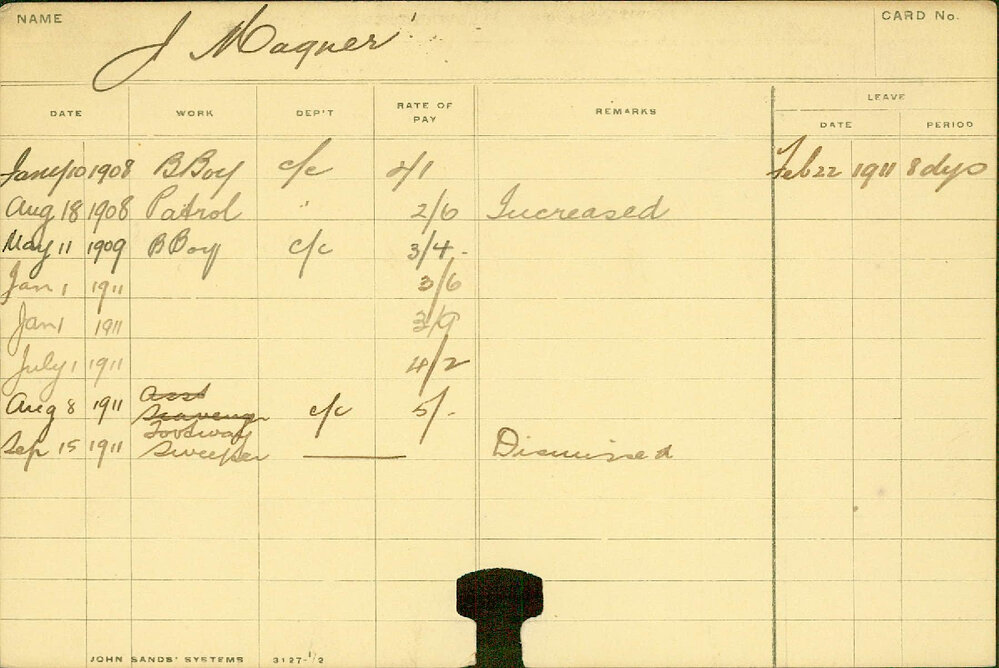 NAME
J Magner
CARD No.
DATE WORK DEP'T RATE OF PAY REMARKS LEAVE
DATE PERIOD
Jany 10 1908 BBoy c/c 2/1 Feb 22 1911 8 dys
Aug 18 1908 Patrol " 2/6 Increased
May 11 1909 BBoy c/c 3/4 -
Jan 1 1911 3/6
Jan 1 1911 3/9
July 1 1911 4/2
Aug 8 1911 Asst Scavenger c/c 5/-
Sep 15 1911 Footway Sweeper Dismissed
JOHN SANDS' SYSTEMS 3127-1/2